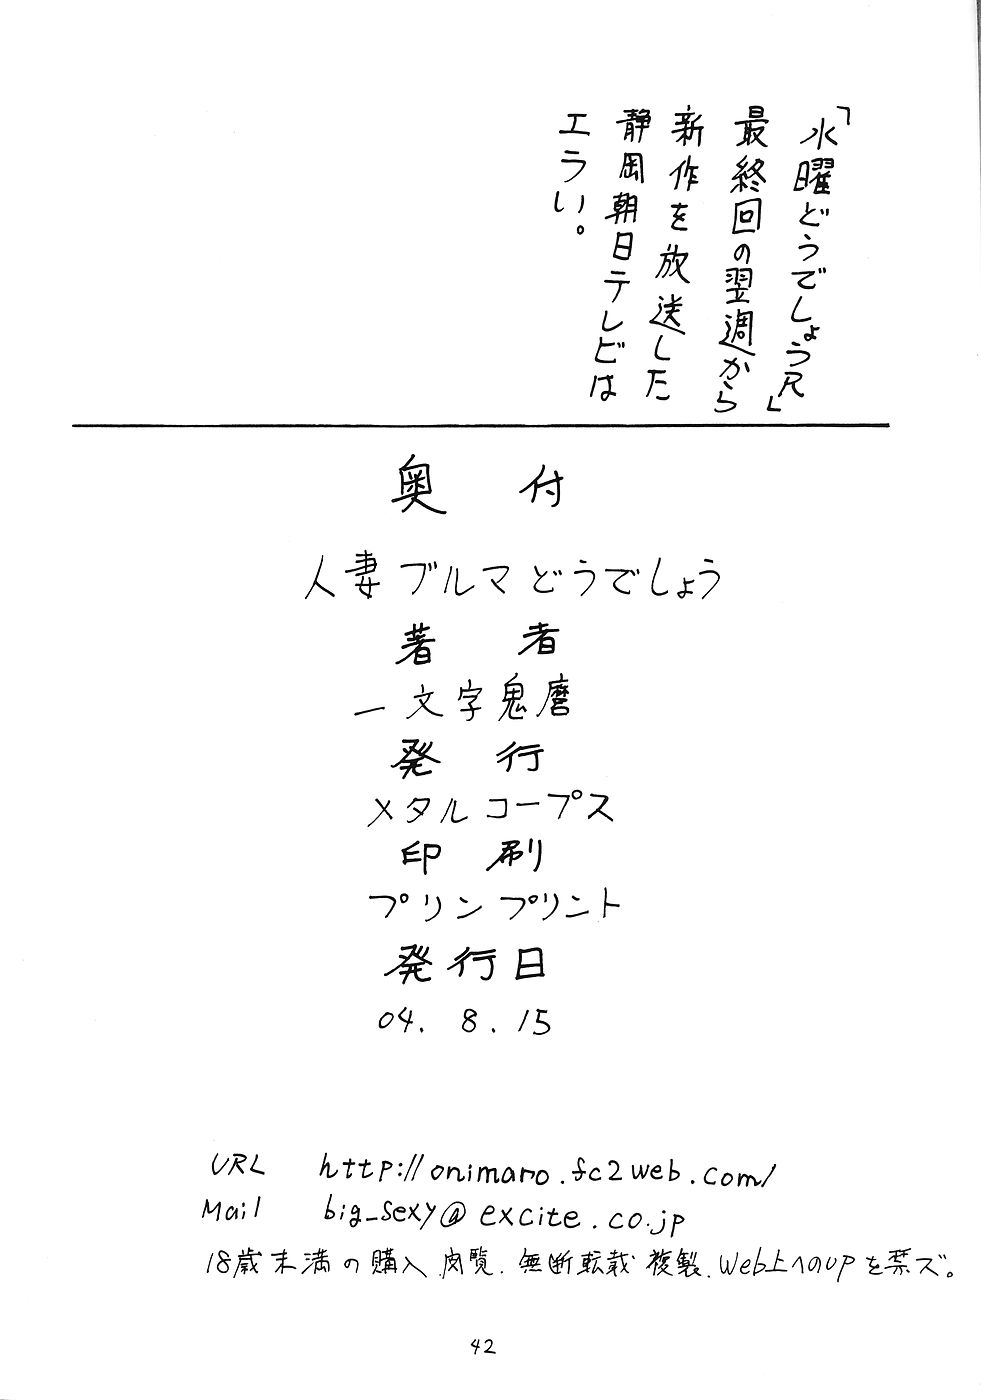 「水曜どうでしょうR」
最終回の翌週から
新作を放送した
静岡朝日テレビは
エラい。
奥付
人妻ブルマどうでしょう
著者
一文字鬼磨
発行
メタルコープス
印刷
プリンプリント
発行日
04. 8. 15
URL http://onimaro.fc2web.com/
Mail big_sexy@excite.co.jp
18歳未満の購入、閲覧、無断転載、複製、Web上へのUPを禁ズ。
42